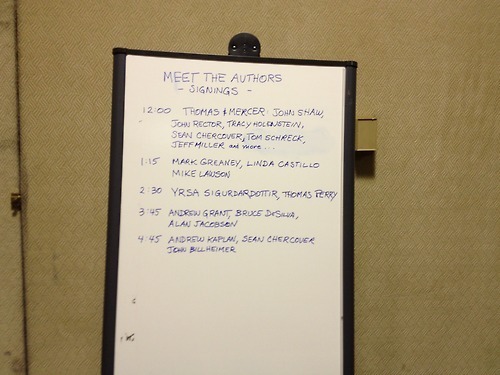 MEET THE AUTHORS
- SIGNINGS -
12:00 THOMAS & MERCER: JOHN SHAW,
JOHN RECTOR, TRACY HOLENSTEIN,
SEAN CHERCOVER, TOM SCHRECK,
JEFF MILLER and more...
1:15 MARK GREANEY, LINDA CASTILLO
MIKE LAWSON
2:30 YRSA SIGURDARDOTTIR, THOMAS PERRY
3:45 ANDREW GRANT, BRUCE DESILVA,
ALAN JACOBSON
4:45 ANDREW KAPLAN, SEAN CHERCOVER
JOHN BILLHEIMER